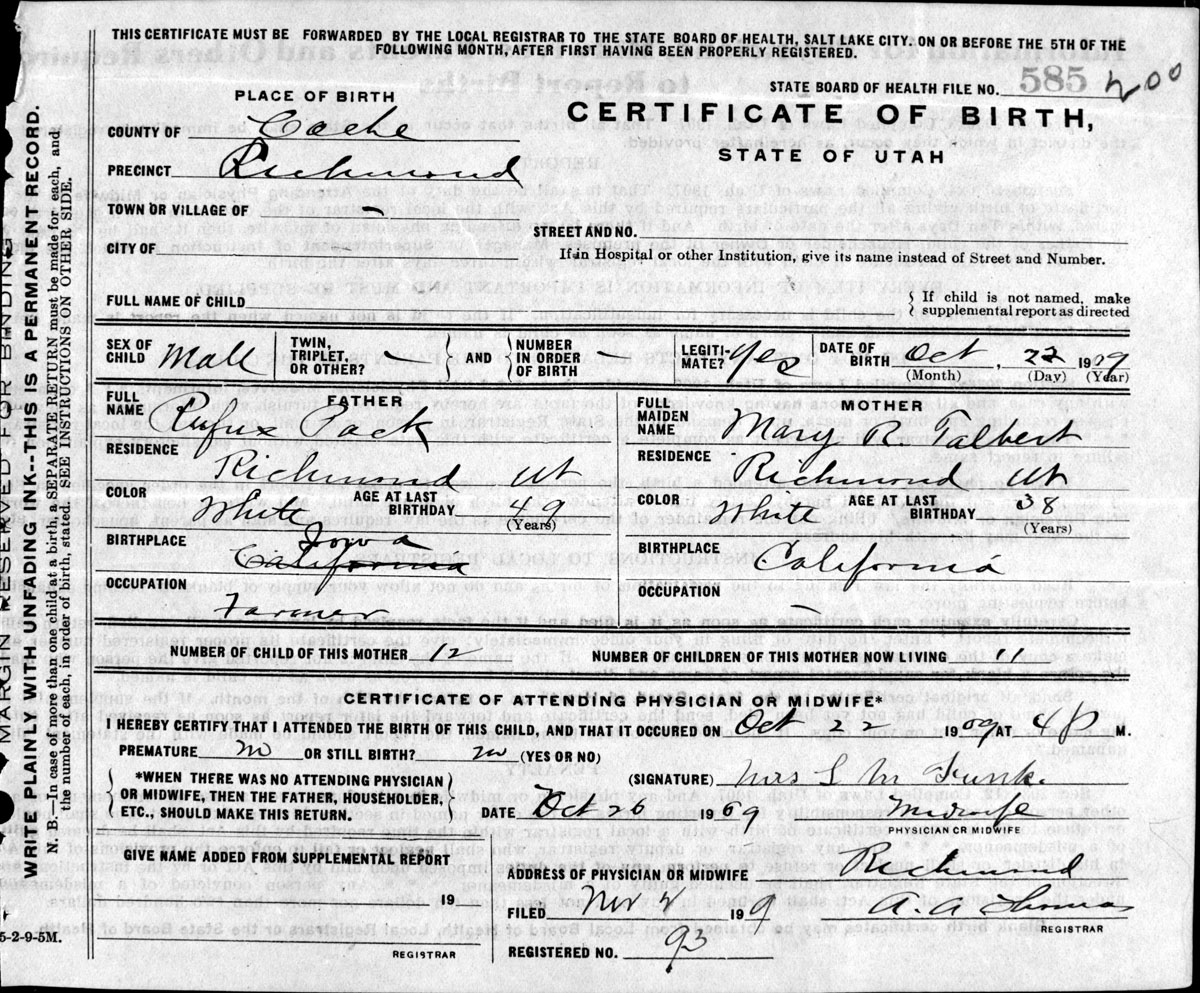 THIS CERTIFICATE MUST BE FORWARDED BY THE LOCAL REGISTRAR TO THE STATE BOARD OF HEALTH, SALT LAKE CITY, ON OR BEFORE THE 5TH OF THE
FOLLOWING MONTH, AFTER FIRST HAVING BEEN PROPERLY REGISTERED.
STATE BOARD OF HEALTH FILE NO. 585 200
PLACE OF BIRTH
CERTIFICATE OF BIRTH,
STATE OF UTAH
COUNTY OF Cache
PRECINCT Richmond
TOWN OR VILLAGE OF —
STREET AND NO.
CITY OF
If in Hospital or other Institution, give its name instead of Street and Number.
FULL NAME OF CHILD
If child is not named, make
supplemental report as directed
SEX OF CHILD Male TWIN, TRIPLET, OR OTHER? — AND NUMBER IN ORDER OF BIRTH LEGITI-MATE? Yes DATE OF BIRTH Oct 22 1909
(Month) (Day) (Year)
FATHER
FULL NAME Rufus Pack
RESIDENCE
Richmond Ut
COLOR White AGE AT LAST BIRTHDAY 49
(Years)
BIRTHPLACE Iowa
California
OCCUPATION
Farmer
MOTHER
FULL MAIDEN NAME Mary R. Talbert
RESIDENCE Richmond Ut
COLOR White AGE AT LAST BIRTHDAY 38
(Years)
BIRTHPLACE California
OCCUPATION
—
NUMBER OF CHILD OF THIS MOTHER 12 NUMBER OF CHILDREN OF THIS MOTHER NOW LIVING 11
CERTIFICATE OF ATTENDING PHYSICIAN OR MIDWIFE*
I HEREBY CERTIFY THAT I ATTENDED THE BIRTH OF THIS CHILD, AND THAT IT OCCURED ON Oct 22 1909 AT 4 P M.
PREMATURE no OR STILL BIRTH? no (YES OR NO)
*WHEN THERE WAS NO ATTENDING PHYSICIAN
OR MIDWIFE, THEN THE FATHER, HOUSEHOLDER,
ETC., SHOULD MAKE THIS RETURN.
(SIGNATURE) Mrs L M Funk.
DATE Oct 26 1909 Midwife
PHYSICIAN OR MIDWIFE
GIVE NAME ADDED FROM SUPPLEMENTAL REPORT
19
REGISTRAR
ADDRESS OF PHYSICIAN OR MIDWIFE Richmond
FILED Nov 2 1909 A. A.
REGISTRAR
REGISTERED NO. 93
MARGIN RESERVED FOR BINDING
WRITE PLAINLY WITH UNFADING INK--THIS IS A PERMANENT RECORD.
N. B.—In case of more than one child at a birth, a SEPARATE RETURN must be made for each, and
the number of each, in order of birth, stated. SEE INSTRUCTIONS ON OTHER SIDE.
5-2-9-5M.